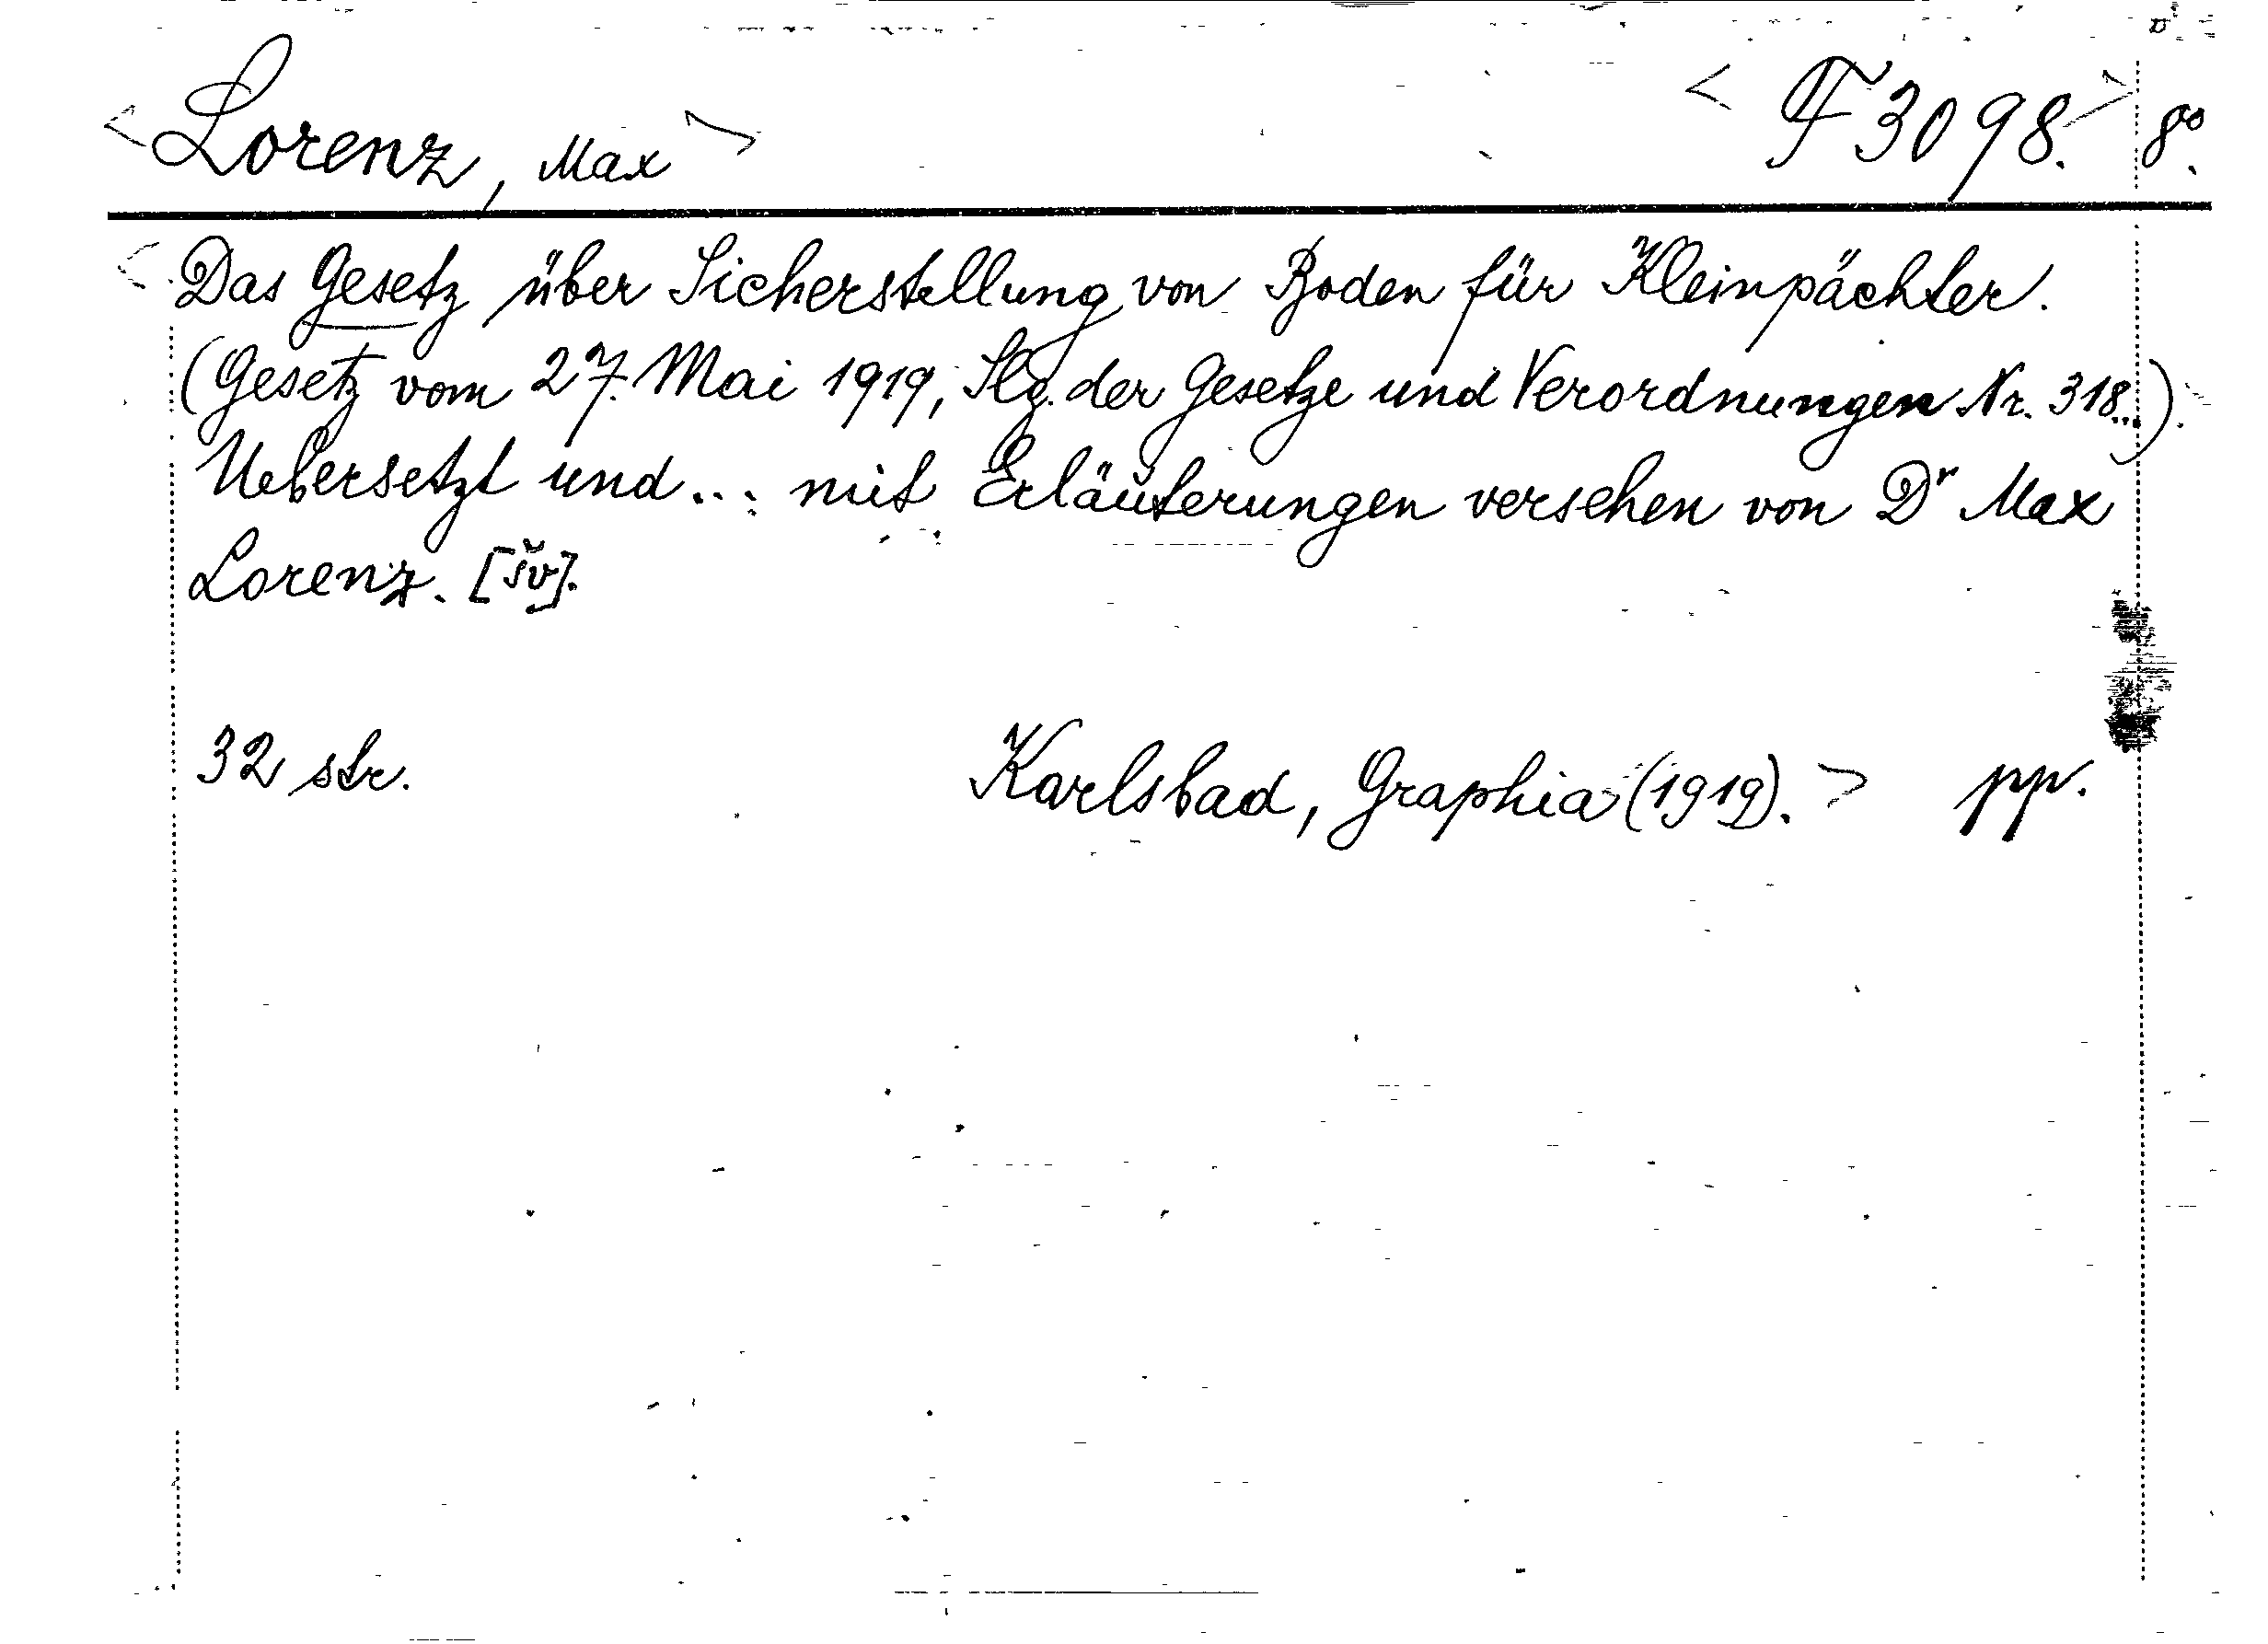 <Lorenz, Max> <F 3098.> 8°.
<Das Gesetz über Sicherstellung von Boden für Kleinpächter.
(Gesetz vom 27. Mai 1919, Slg. der Gesetze und Verordnungen Nr. 318...).
Uebersetzt und... mit Erläuterungen versehen von Dr Max
Lorenz. [šv].
32 str. Karlsbad, Graphia (1919).> pp.